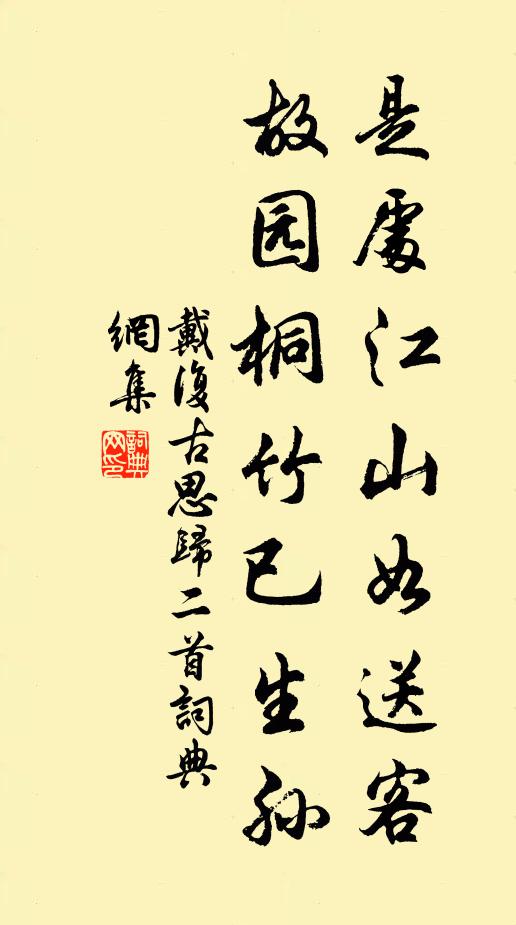 是處江山如送客
故园桐竹已生孙
戴復古思歸二首詞典
網集
詞典网印